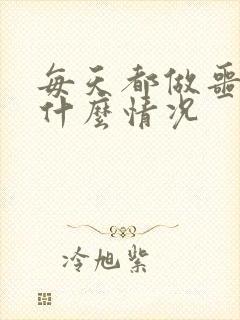 每天都做噩
什麼情况
冷旭紫